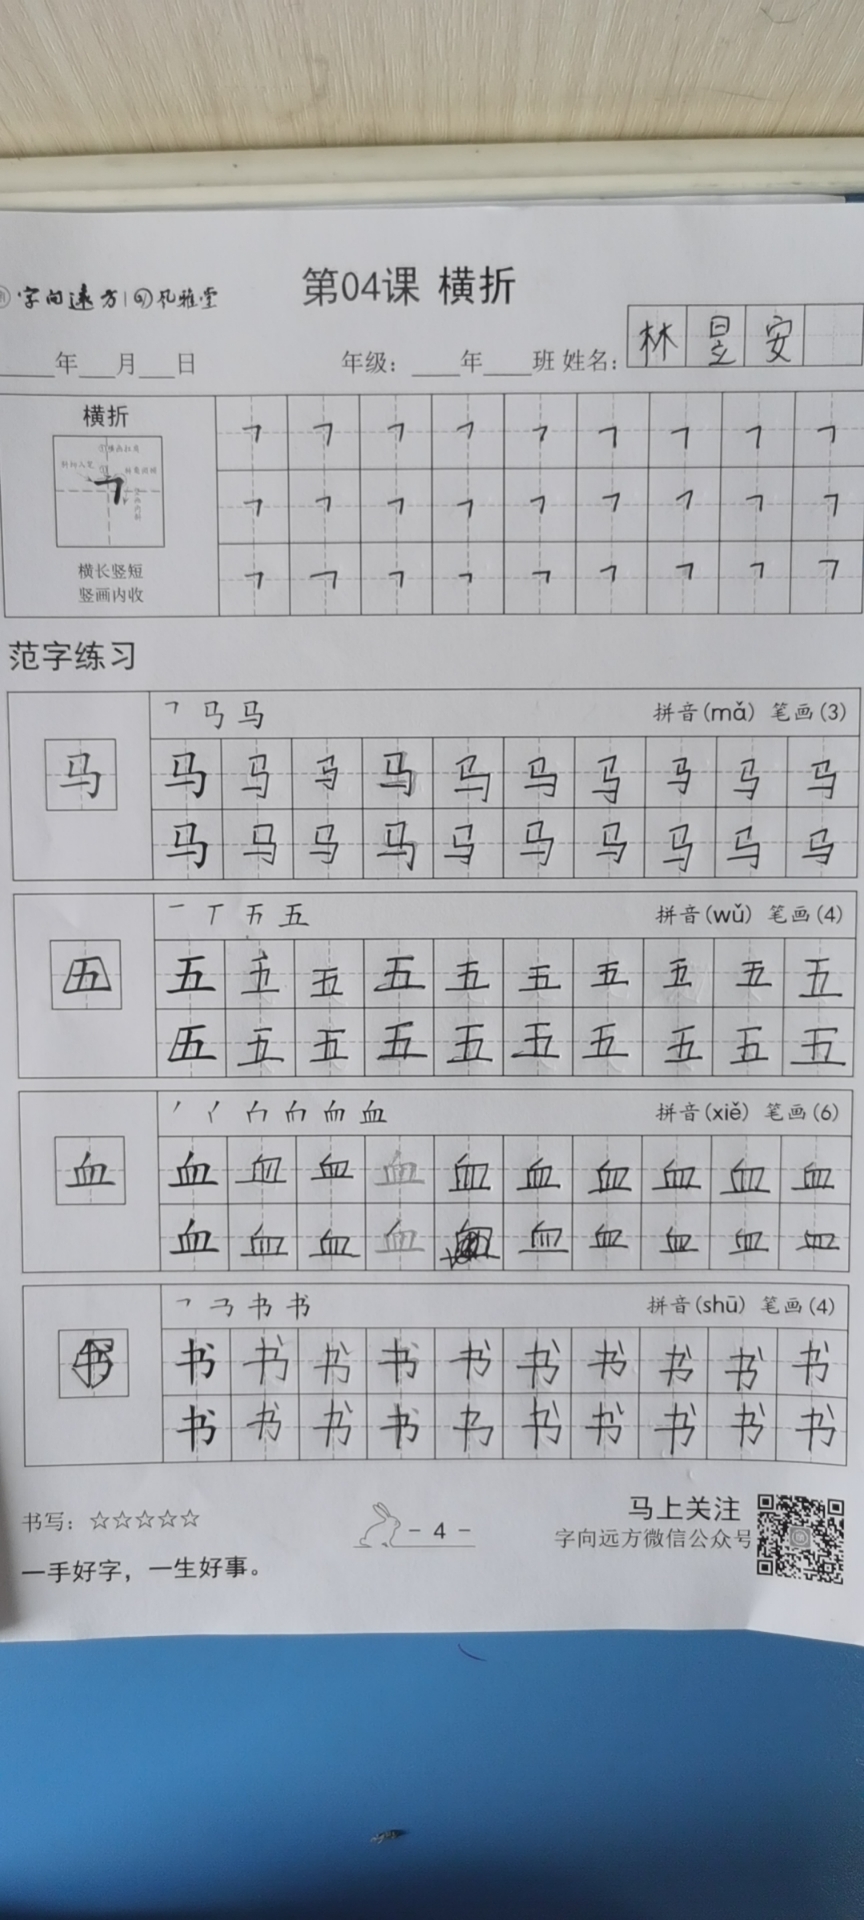 字向远方 | 风雅堂
第04课 横折
年 月 日 年级： 年 班 姓名： 林 昱 安
横折
横长竖短
竖画内收
㇕ ㇕ ㇕ ㇕ ㇕ ㇕ ㇕ ㇕ ㇕
㇕ ㇕ ㇕ ㇕ ㇕ ㇕ ㇕ ㇕ ㇕
㇕ ㇕ ㇕ ㇕ ㇕ ㇕ ㇕ ㇕ ㇕
范字练习
马 拼音(mǎ) 笔画(3)
马
马 马 马 马 马 马 马 马 马 马
马 马 马 马 马 马 马 马 马 马
五 拼音(wǔ) 笔画(4)
五
五 五 五 五 五 五 五 五 五 五
五 五 五 五 五 五 五 五 五 五
血 拼音(xiě) 笔画(6)
血
血 血 血 血 血 血 血 血 血 血
血 血 血 血 血 血 血 血 血
书 拼音(shū) 笔画(4)
书
书 书 书 书 书 书 书 书 书 书
书 书 书 书 书 书 书 书 书 书
书写：☆☆☆☆☆
一手好字，一生好事。
- 4 -
马上关注
字向远方微信公众号